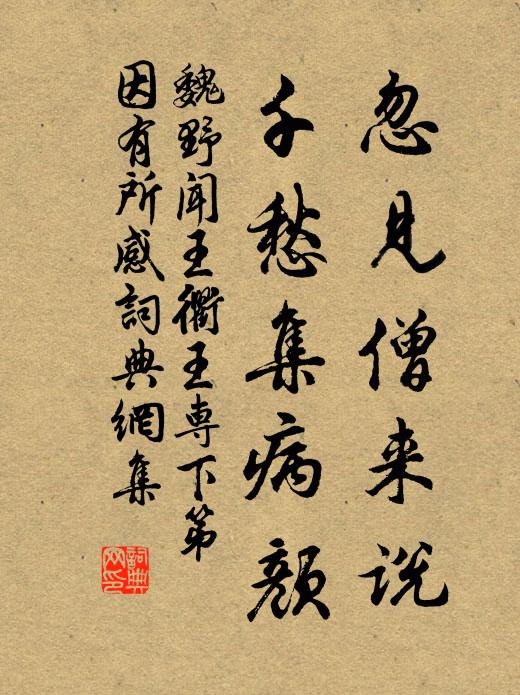 忽见僧来说
千愁集病颜
魏野闻王衢王専下第
因有所感词典網集
詞典
网印